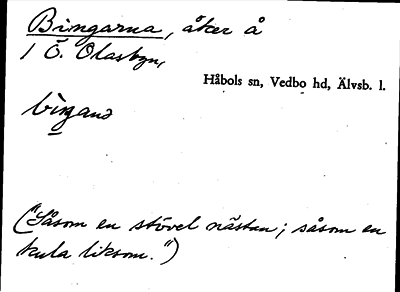 Bingarna, åker å
1 Ö. Olasbyn,
Håbols sn, Vedbo hd, Älvsb. l.
("Såsom en stövel nästan; såsom en
kula liksom.")